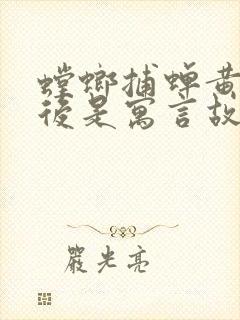 螳螂捕蟬黃
後是寓言故
嚴光亮